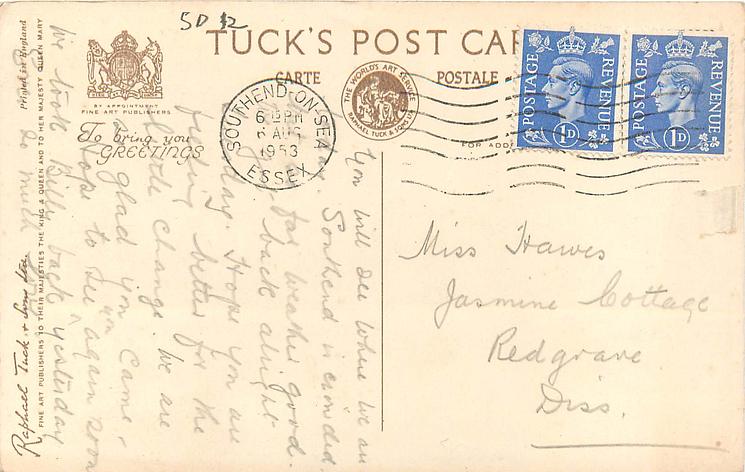 5D 12
TUCK'S POST CAR
CARTE POSTALE
Printed in England
BY APPOINTMENT
FINE ART PUBLISHERS
To bring you
GREETINGS
Raphael Tuck & Sons Ltd.
FINE ART PUBLISHERS TO THEIR MAJESTIES THE KING & QUEEN AND TO HER MAJESTY QUEEN MARY
THE WORLD'S ART SERVICE
RAPHAEL TUCK & SONS LTD
SOUTHEND-ON-SEA
6 PM
6 AUG
1953
ESSEX
POSTAGE REVENUE
1D
POSTAGE REVENUE
1D
FOR ADD
You will see where we are
Southend is crowded.
far weather good.
back alright
day. Hope you are
feeling better for the
little change. We are
glad you came,
hope to see you again soon
We took Bill back yesterday
Miss Hawes
Jasmine Cottage
Redgrave
Diss.